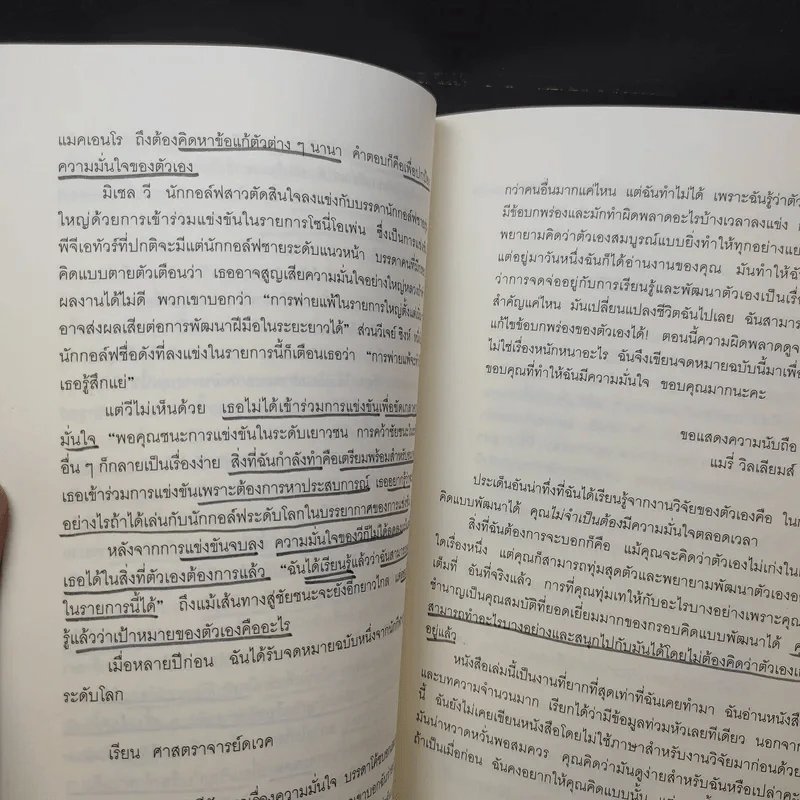 แมคเอนโร ถึงต้องคิดหาข้อแก้ตัวต่าง ๆ นานา คำตอบก็คือเพื่อปกป้อง
ความมั่นใจของตัวเอง
มิเชล วี นักกอล์ฟสาวตัดสินใจลงแข่งกับบรรดานักกอล์ฟชาย
ใหญ่ด้วยการเข้าร่วมแข่งขันในรายการโซนี่โอเพ่น ซึ่งเป็นการแข่งขัน
พีจีเอทัวร์ที่ปกติจะมีแต่นักกอล์ฟชายระดับแนวหน้า บรรดาคนที่มีกรอบ
คิดแบบตายตัวเตือนว่า เธออาจสูญเสียความมั่นใจอย่างใหญ่หลวง
ผลงานได้ไม่ดี พวกเขาบอกว่า “การพ่ายแพ้ในรายการใหญ่ตั้งแต่
อาจส่งผลเสียต่อการพัฒนาฝีมือในระยะยาวได้” ส่วนวีเจย์ ซิงห์
นักกอล์ฟชื่อดังที่ลงแข่งในรายการนี้ก็เตือนเธอว่า “การพ่ายแพ้จะทำให้
เธอรู้สึกแย่”
แต่วีไม่เห็นด้วย เธอไม่ได้เข้าร่วมการแข่งขันเพื่อขัดเกลา
มั่นใจ “พอคุณชนะการแข่งขันในระดับเยาวชน การคว้าชัยชนะใน
อื่น ๆ ก็กลายเป็นเรื่องง่าย สิ่งที่ฉันกำลังทำคือเตรียมพร้อมสำหรับ
เธอเข้าร่วมการแข่งขันเพราะต้องการหาประสบการณ์ เธออยากรู้ว่า
อย่างไรถ้าได้เล่นกับนักกอล์ฟระดับโลกในบรรยากาศของการแข่งขัน
หลังจากการแข่งขันจบลง ความมั่นใจของวีก็ไม่ได้ลดลง
เธอได้ในสิ่งที่ตัวเองต้องการแล้ว “ฉันได้เรียนรู้แล้วว่าฉันสามารถ
ในรายการนี้ได้” ถึงแม้เส้นทางสู่ชัยชนะจะยังอีกยาวไกล
รู้แล้วว่าเป้าหมายของตัวเองคืออะไร
เมื่อหลายปีก่อน ฉันได้รับจดหมายฉบับหนึ่งจากนักกีฬา
ระดับโลก
เรียน ศาสตราจารย์ดเวค
เรื่องความมั่นใจ บรรดาโค้ช
กว่าคนอื่นมากแค่ไหน แต่ฉันทำไม่ได้ เพราะฉันรู้ว่าตัว
มีข้อบกพร่องและมักทำผิดพลาดอะไรบ้างเวลาลงแข่ง
พยายามคิดว่าตัวเองสมบูรณ์แบบยิ่งทำให้ทุกอย่างแย่
แต่อยู่มาวันหนึ่งฉันก็ได้อ่านงานของคุณ มันทำให้ฉัน
ว่าการจดจ่ออยู่กับการเรียนรู้และพัฒนาตัวเองเป็นเรื่อง
สำคัญแค่ไหน มันเปลี่ยนแปลงชีวิตฉันไปเลย ฉันสามารถ
แก้ไขข้อบกพร่องของตัวเองได้! ตอนนี้ความผิดพลาดดูจะ
ไม่ใช่เรื่องหนักหนาอะไร ฉันจึงเขียนจดหมายฉบับนี้มาเพื่อ
ขอบคุณที่ทำให้ฉันมีความมั่นใจ ขอบคุณมากนะคะ
ขอแสดงความนับถือ
แมรี่ วิลเลียมส์
ประเด็นอันน่าทึ่งที่ฉันได้เรียนรู้จากงานวิจัยของตัวเองคือ
คิดแบบพัฒนาได้ คุณไม่จำเป็นต้องมีความมั่นใจตลอดเวลา
สิ่งที่ฉันต้องการจะบอกก็คือ แม้คุณจะคิดว่าตัวเองไม่เก่งใน
ใดเรื่องหนึ่ง แต่คุณก็สามารถทุ่มสุดตัวและพยายามพัฒนาตัวเอง
เต็มที่ อันที่จริงแล้ว การที่คุณทุ่มเทให้กับอะไรบางอย่างเพราะคุณ
ชำนาญเป็นคุณสมบัติที่ยอดเยี่ยมมากของกรอบคิดแบบพัฒนาได้
สามารถทำอะไรบางอย่างและสนุกไปกับมันได้โดยไม่ต้องคิดว่าตัวเอง
อยู่แล้ว
หนังสือเล่มนี้เป็นงานที่ยากที่สุดเท่าที่ฉันเคยทำมา ฉันอ่านหนังสือ
และบทความจำนวนมาก เรียกได้ว่ามีข้อมูลท่วมหัวเลยทีเดียว นอกจาก
นี้ ฉันยังไม่เคยเขียนหนังสือโดยไม่ใช้ภาษาสำหรับงานวิจัยมาก่อนด้วย
มันน่าหวาดหวั่นพอสมควร คุณคิดว่ามันดูง่ายสำหรับฉันหรือเปล่าคะ
ถ้าเป็นเมื่อก่อน ฉันคงอยากให้คุณคิดแบบนั้น